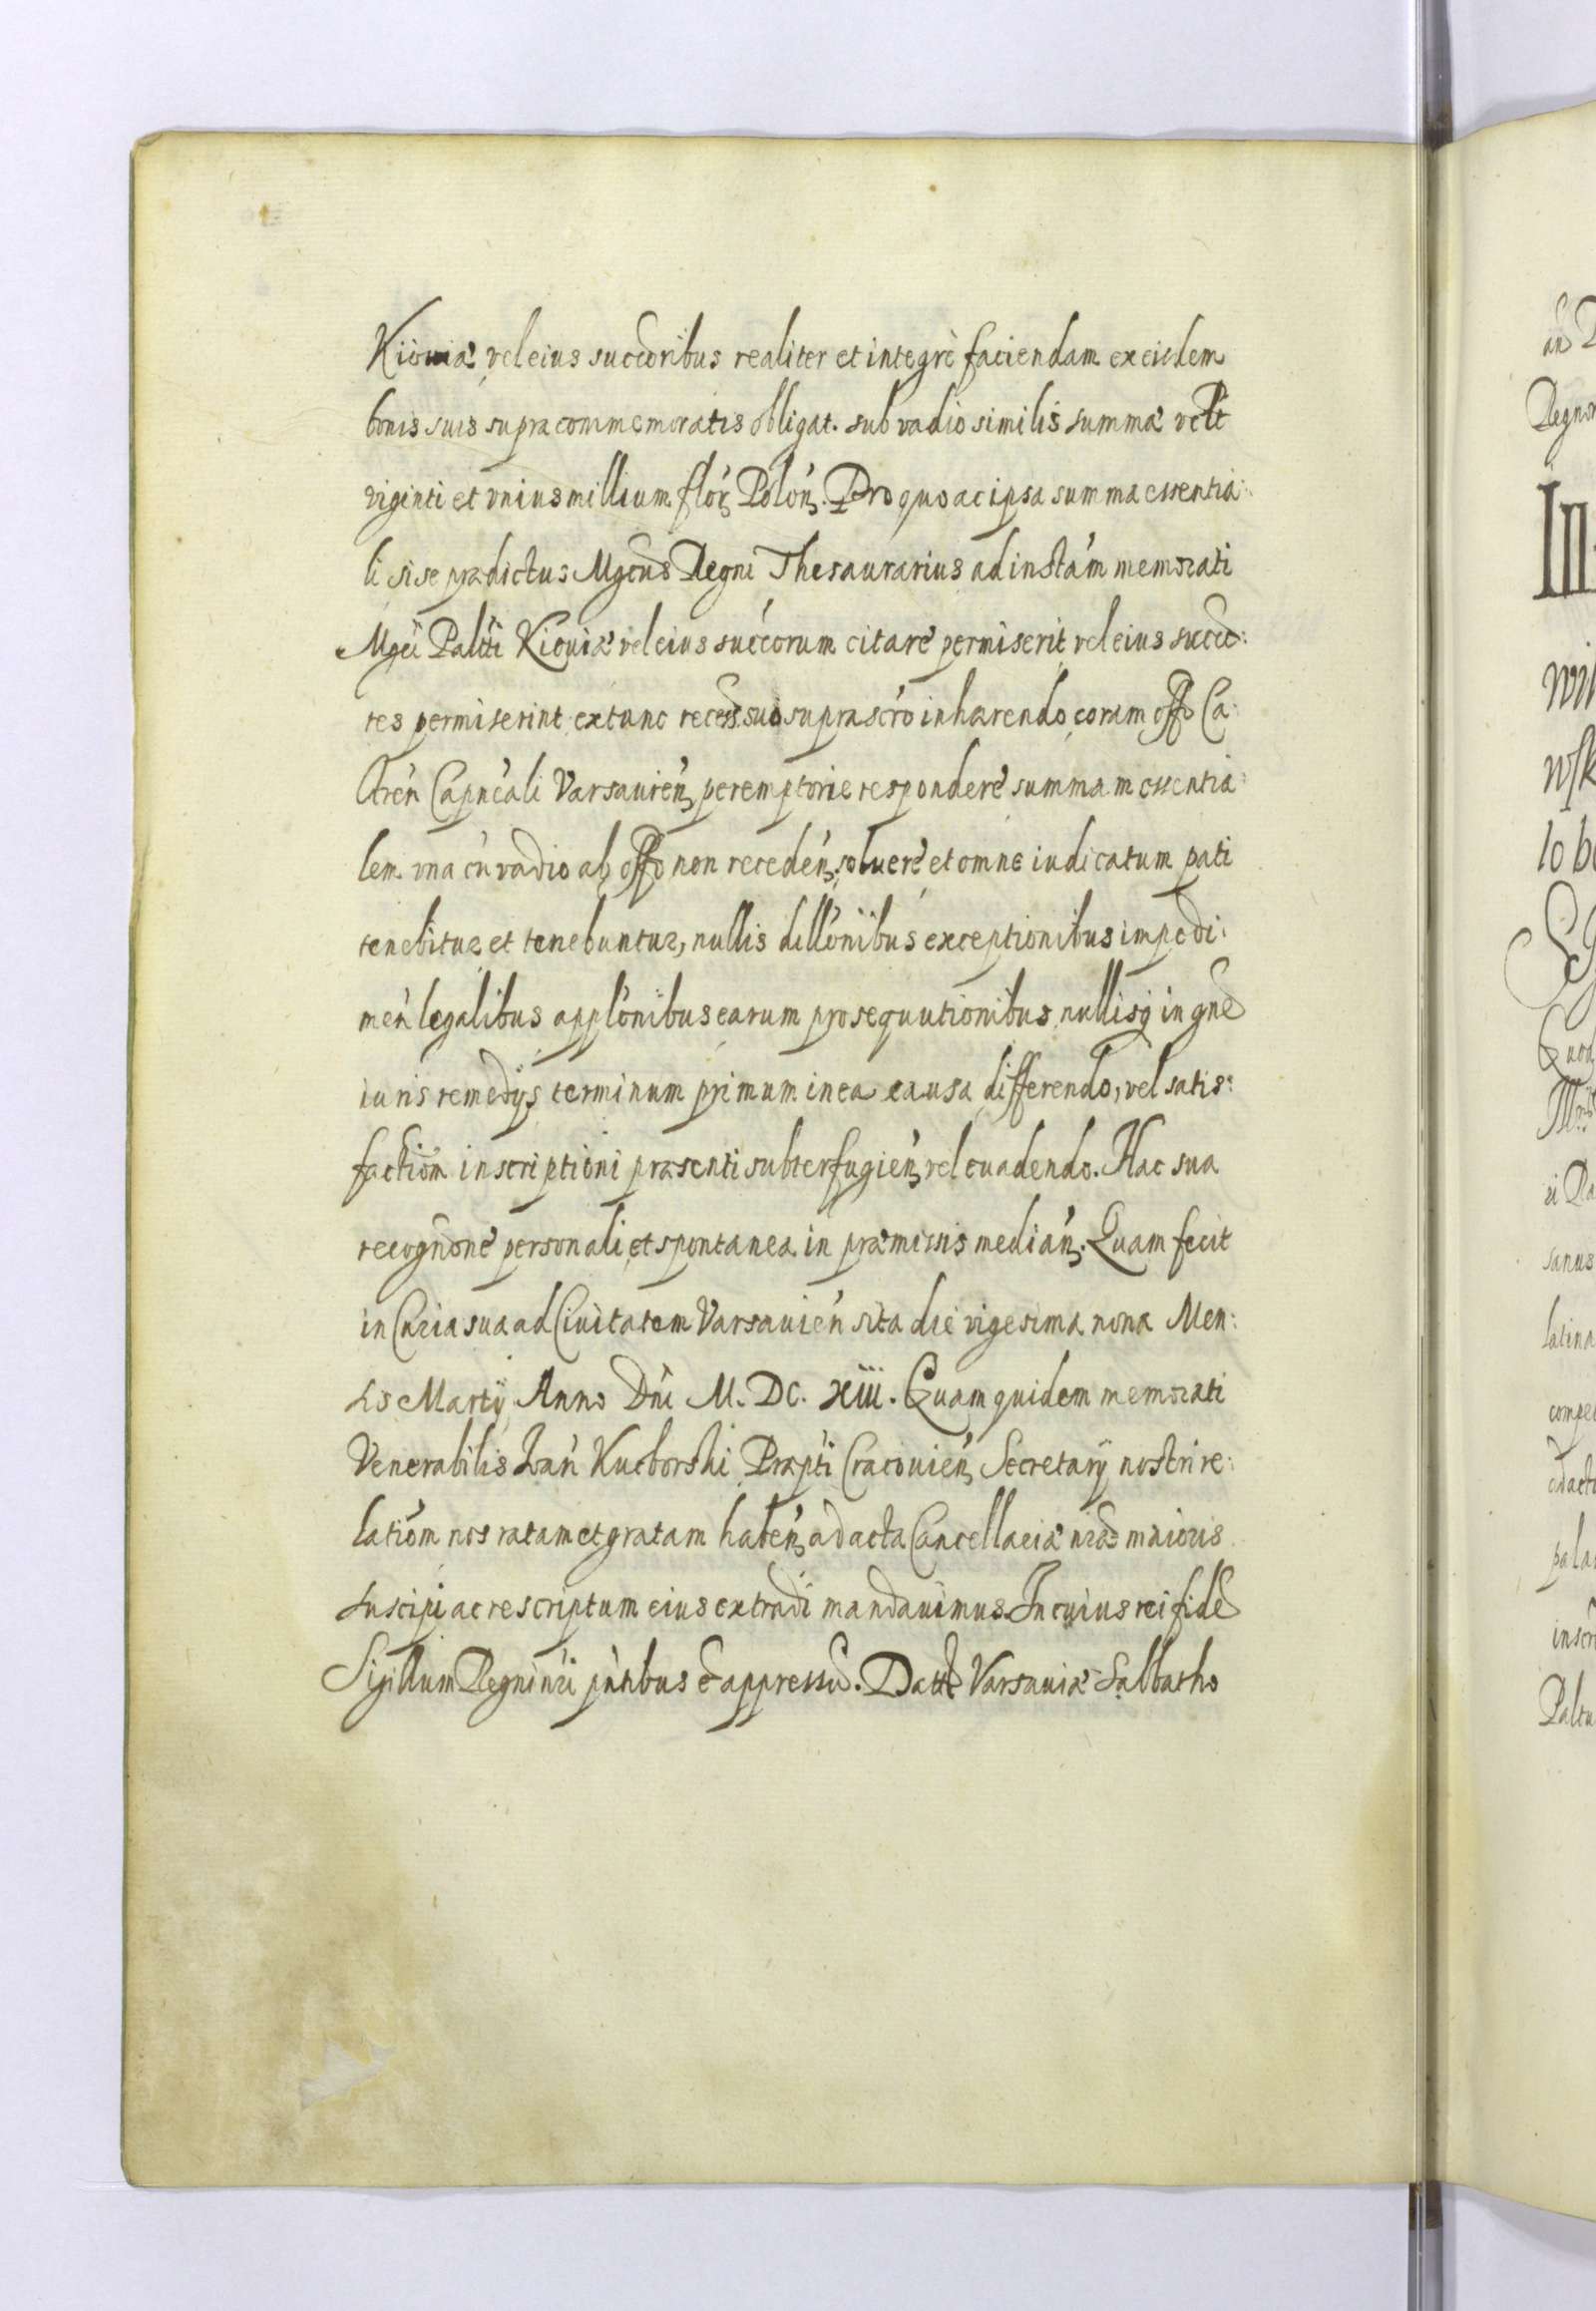 Kiiouiæ vel eius succoribus realiter et integrè faciendam ex eisdem
bonis suis supracommemoratis obligat. sub vadio similis summæ vclt
viginti et vnius millium flor Polon. Pro quo ac ipsa summa essentia:
li si se prædictus Mgcus Regni Thesaurarius ad instam memorati
Mgci Palti Kiouiæ vel eius succorum citare permiserit vel eius succo:
res permiserint extunc recess. suo suprascro inhærendo coram offo Ca:
stren Capneali Varsauien peremptorie respondere summam essentia:
lem vna cu vadio ab offo non receden, soluere et omne iudicatum pati
tenebitur et tenebuntur, nullis dillonibus exceptionibus impedi:
men legalibus applonibus earum prosequutionibus nullisq in gne
iuris remedijs terminum primum in ea causa differendo, vel satis:
faction inscriptioni præsenti subterfugien vel euadendo. Hac sua
recognone personali et spontanea in præmissis median. Quam fecit
in Curia sua ad Ciuitatem Varsauien sita die vigesima nona Men:
sis Martij Anno Dni M. DC. xiii. Quam quidem memorati
Venerabilis Ioan Kucborski Præpti Cracouien Secretarij nostri re:
lation nos ratam et gratam haben ad acta Cancellariæ nræ maioris
suscipi ac rescriptum eius extradi mandauimus. In cuius rei fide
Sigillum Regni nri pntibus e appressu. Datt Varsauiæ Sabbatho